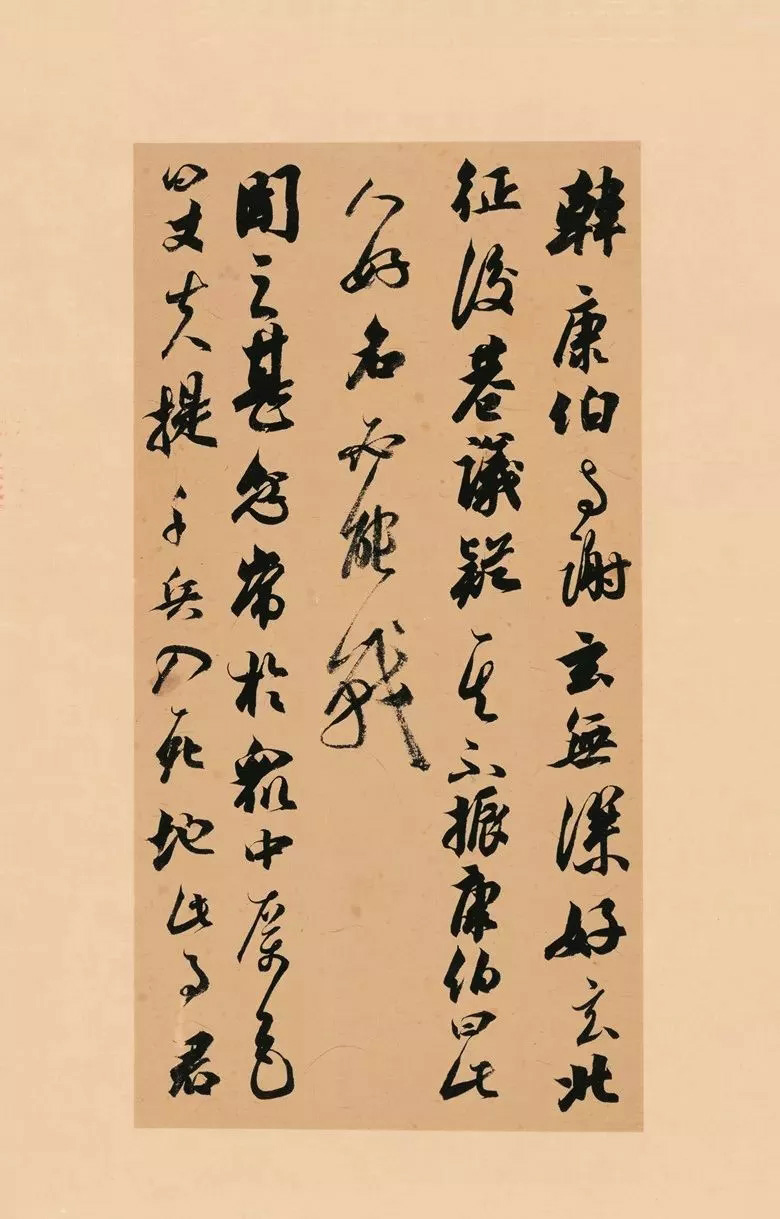 韓康伯與謝玄無深好玄北
征後巷議疑其不振康伯曰此
人好名必能戰
聞之甚忿常於眾中厲色
曰丈夫提千兵入死地以事君